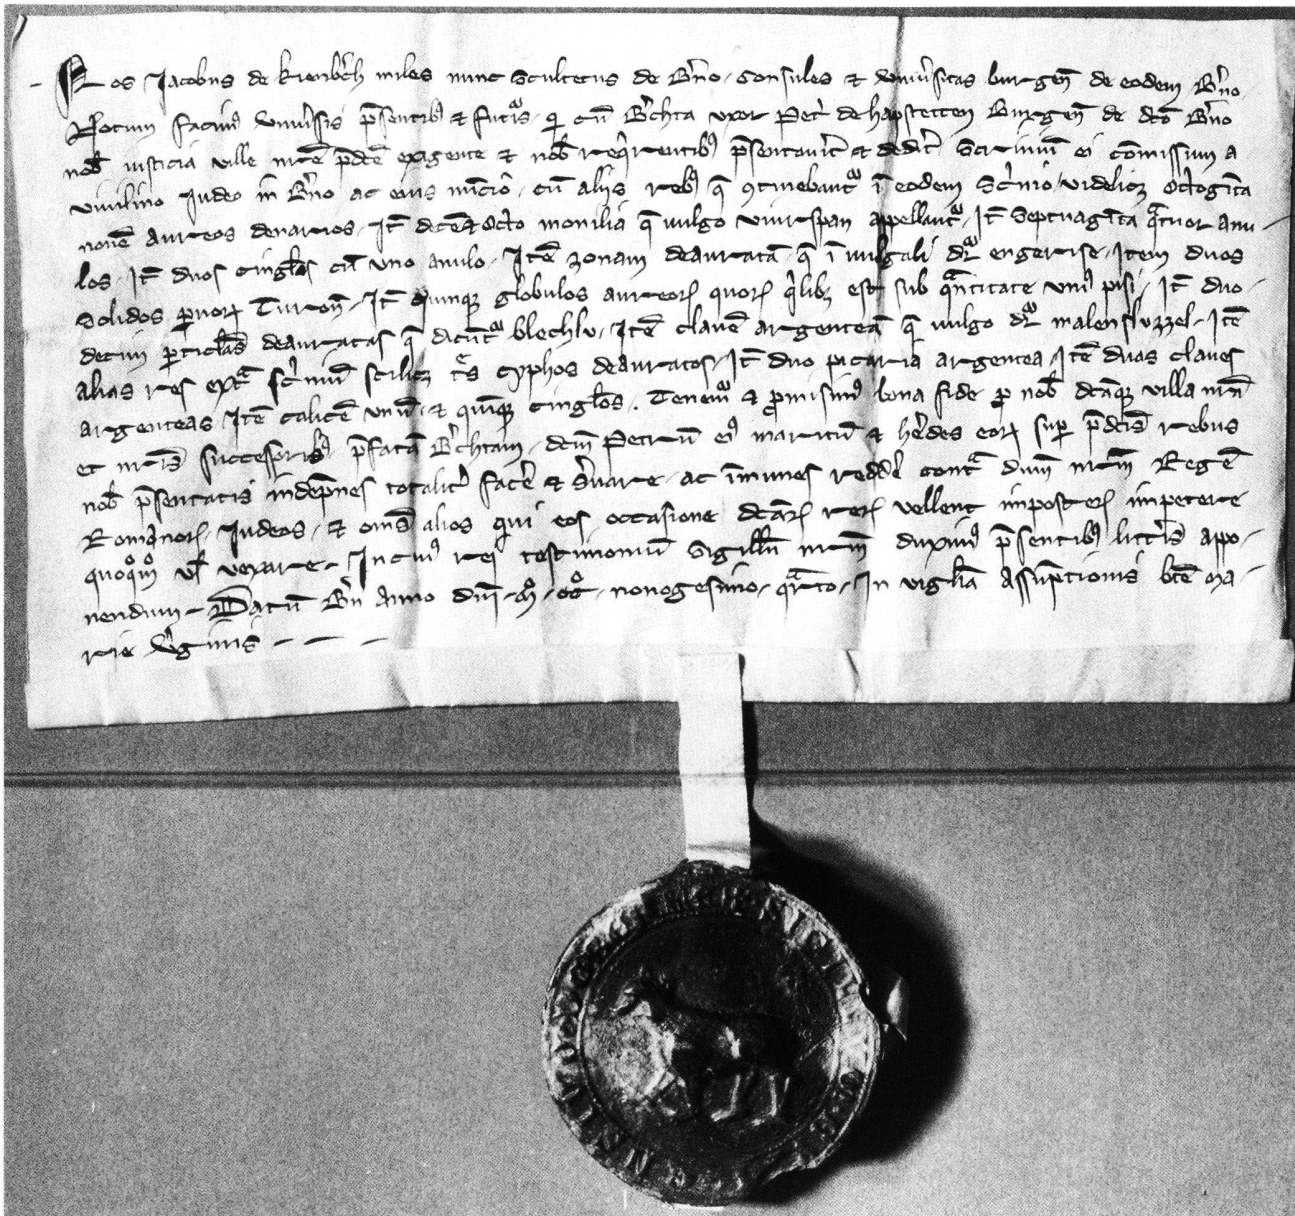 Nos Jacobus de kienbch miles nunc Scultetus de Bno. Consules et Uniusitas burgen de eodem Bno.
Notum facim Vniusis psentib et futis. q cu Bchta uxor Pet de hapstetten Burgen de dco Bno
nob iusticia ville nre pdce exigente et nob reqrentib psentauit et dedit Scrinium ei comissum a
vivilino Judeo in Bno ac eius nucio. cu aliis reb q 9tinebant i eodem Scinio. videlicz Octoginta
noue aureos denarios. It dece et octo monilia q uulgo viurspan appellant. It Septuaginta qtuor anu-
los. It duos cinglos cu uno anulo. Ite zonam deaurata. q i uulgali dr engerise. Item duos
Solidos puor Turon. It quinque globulos aureor quor qlibz est sub qntitate uni pisi. It duo-
decim pticlas deauratas q dicut blechlu. Ite claue argentea q uulgo dr malensluzzel. Ite
alias res ext scinium scilicz ts cyphos deauratos. It duo picaria argentea. Ite duas claues
argenteas. Ite calice unu. et quiqz cinglos. Tenem et pmisim bona fide p nob dcaqz villa nra
et nris successorib pfata Bchtam. dcm Petru ei maritu et hedes eor sup pdcis rebus
nob psentatis indepnes totalit face et Suare. ac imunes redde cont dnm nrm Rege
Romanor. Judeos. et oms alios qui eos occasione dcar rer vellent imposter impetere
quoqmo ul vexare. In cui rei testimoniu Sigillu nrm duxim psentib littis appo-
nendum. Datu Bn Anno dni. m. cc. nonogesimo. qrto. In vigilia Assuptionis bte Ma-
rie Vginis